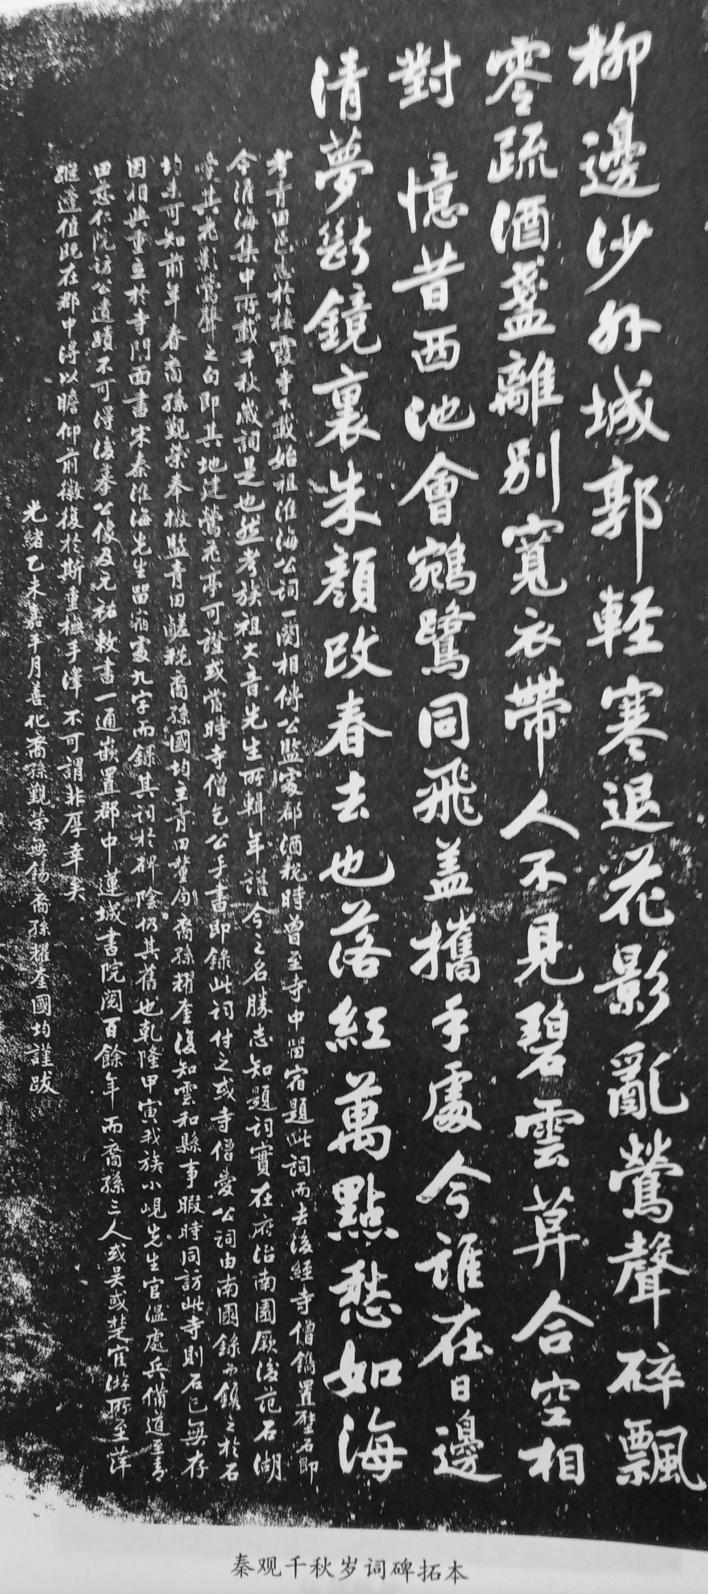 柳邊沙外城郭輕寒退花影亂鶯聲碎飄
零疏酒盞離別寬衣帶人不見碧雲暮合空相
對 憶昔西池會鵷鷺同飛蓋攜手處今誰在日邊
清夢斷鏡裏朱顏改春去也落紅萬點愁如海
考青田邑志於棲霞寺下載始祖淮海公詞一闋相傳公監處郡酒稅時曾至寺中留宿題此詞而去後經寺僧鐫置壁石即
今淮海集中所載千秋歲詞是也然考族祖大音先生所輯年譜今之名勝志知題詞實在府治南園厥後范石湖
愛其花影鶯聲之句即其地建鶯花亭可證或當時寺僧乞公手書即錄此詞付之或寺僧愛公詞由南園錄而鐫之於石
均未可知前年春裔孫觀榮奉檄監青田鹽稅裔孫國均主青田釐局裔孫耀奎復知雲和縣事暇時同訪此寺則石已無存
因相與重立於寺門面書宋秦淮海先生留宿處九字而錄其詞於碑陰仍其舊也乾隆甲寅我族小峴先生官溫處兵備道至青
田慈仁院訪公遺蹟不可得後摹公像及元祐敕書一通嵌置郡中蓮城書院閱百餘年而裔孫三人或吳或楚宦游所至萍
蹤遭值既在郡中得以瞻仰前徽復於斯重橅手澤不可謂非厚幸矣
光緒乙未嘉平月善化裔孫觀榮無錫裔孫耀奎國均謹跋
秦观千秋岁词碑拓本